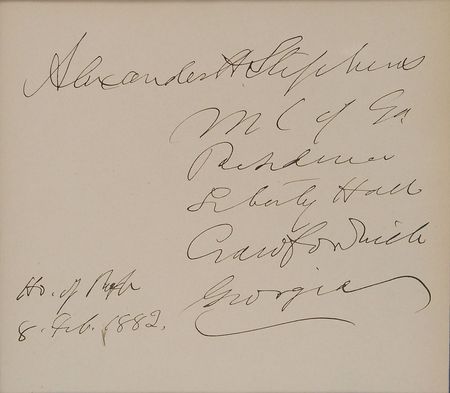 Alexander H. Stephens
M C of Ga
Residence
Liberty Hall
Crawfordville
Georgia
Ho. of Rep
8. Feb. 1882.